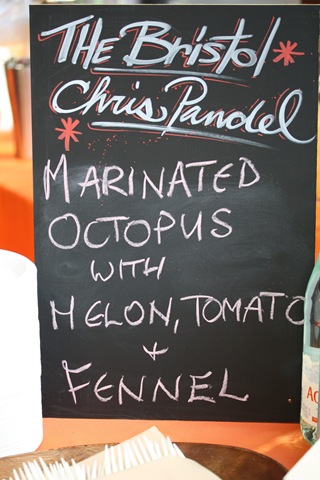 THE Bristol
Chris Pandel
MARINATED
OCTOPUS
WITH
MELON, TOMATO
+
FENNEL